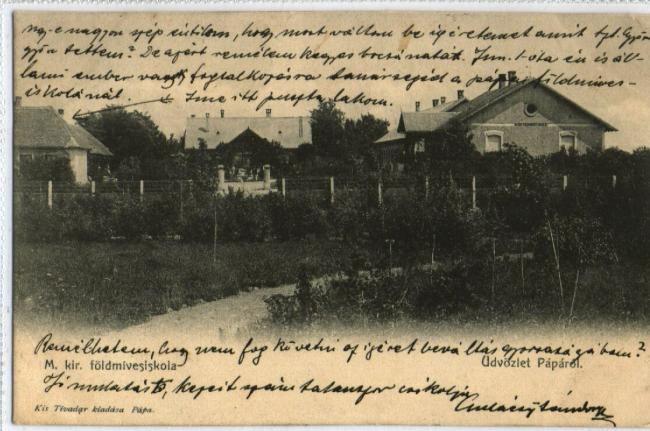 ug-e nagyon szép éntőlem, hogy most váltom be ígéretemet amit Győr
győn tettem? De azért remélem kegyes bocsánatát. Jun. 1-óta én is ál-
lami ember vagyok foglalkozásra tanársegéd a pápai földmives-
iskolánál. Íme itt puszta lakom.
Remélhetem, hogy nem fog követni az ígéret beváltás gyorsaságában?
M. kir. földmivesiskola
Üdvözlet Pápáról.
kezeit számtalanszor csókolja
Sándor
Kis Tivadar kiadása Pápa.